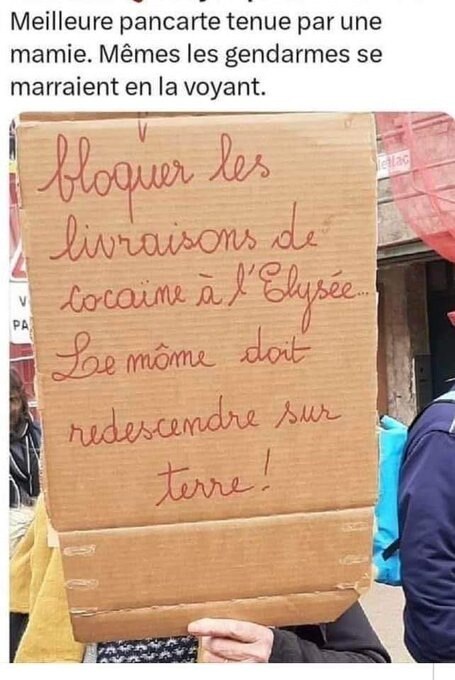 Meilleure pancarte tenue par une
mamie. Mêmes les gendarmes se
marraient en la voyant.
bloquer les
livraisons de
cocaïne à l'Elysée...
Le môme doit
redescendre sur
terre!
V
PA